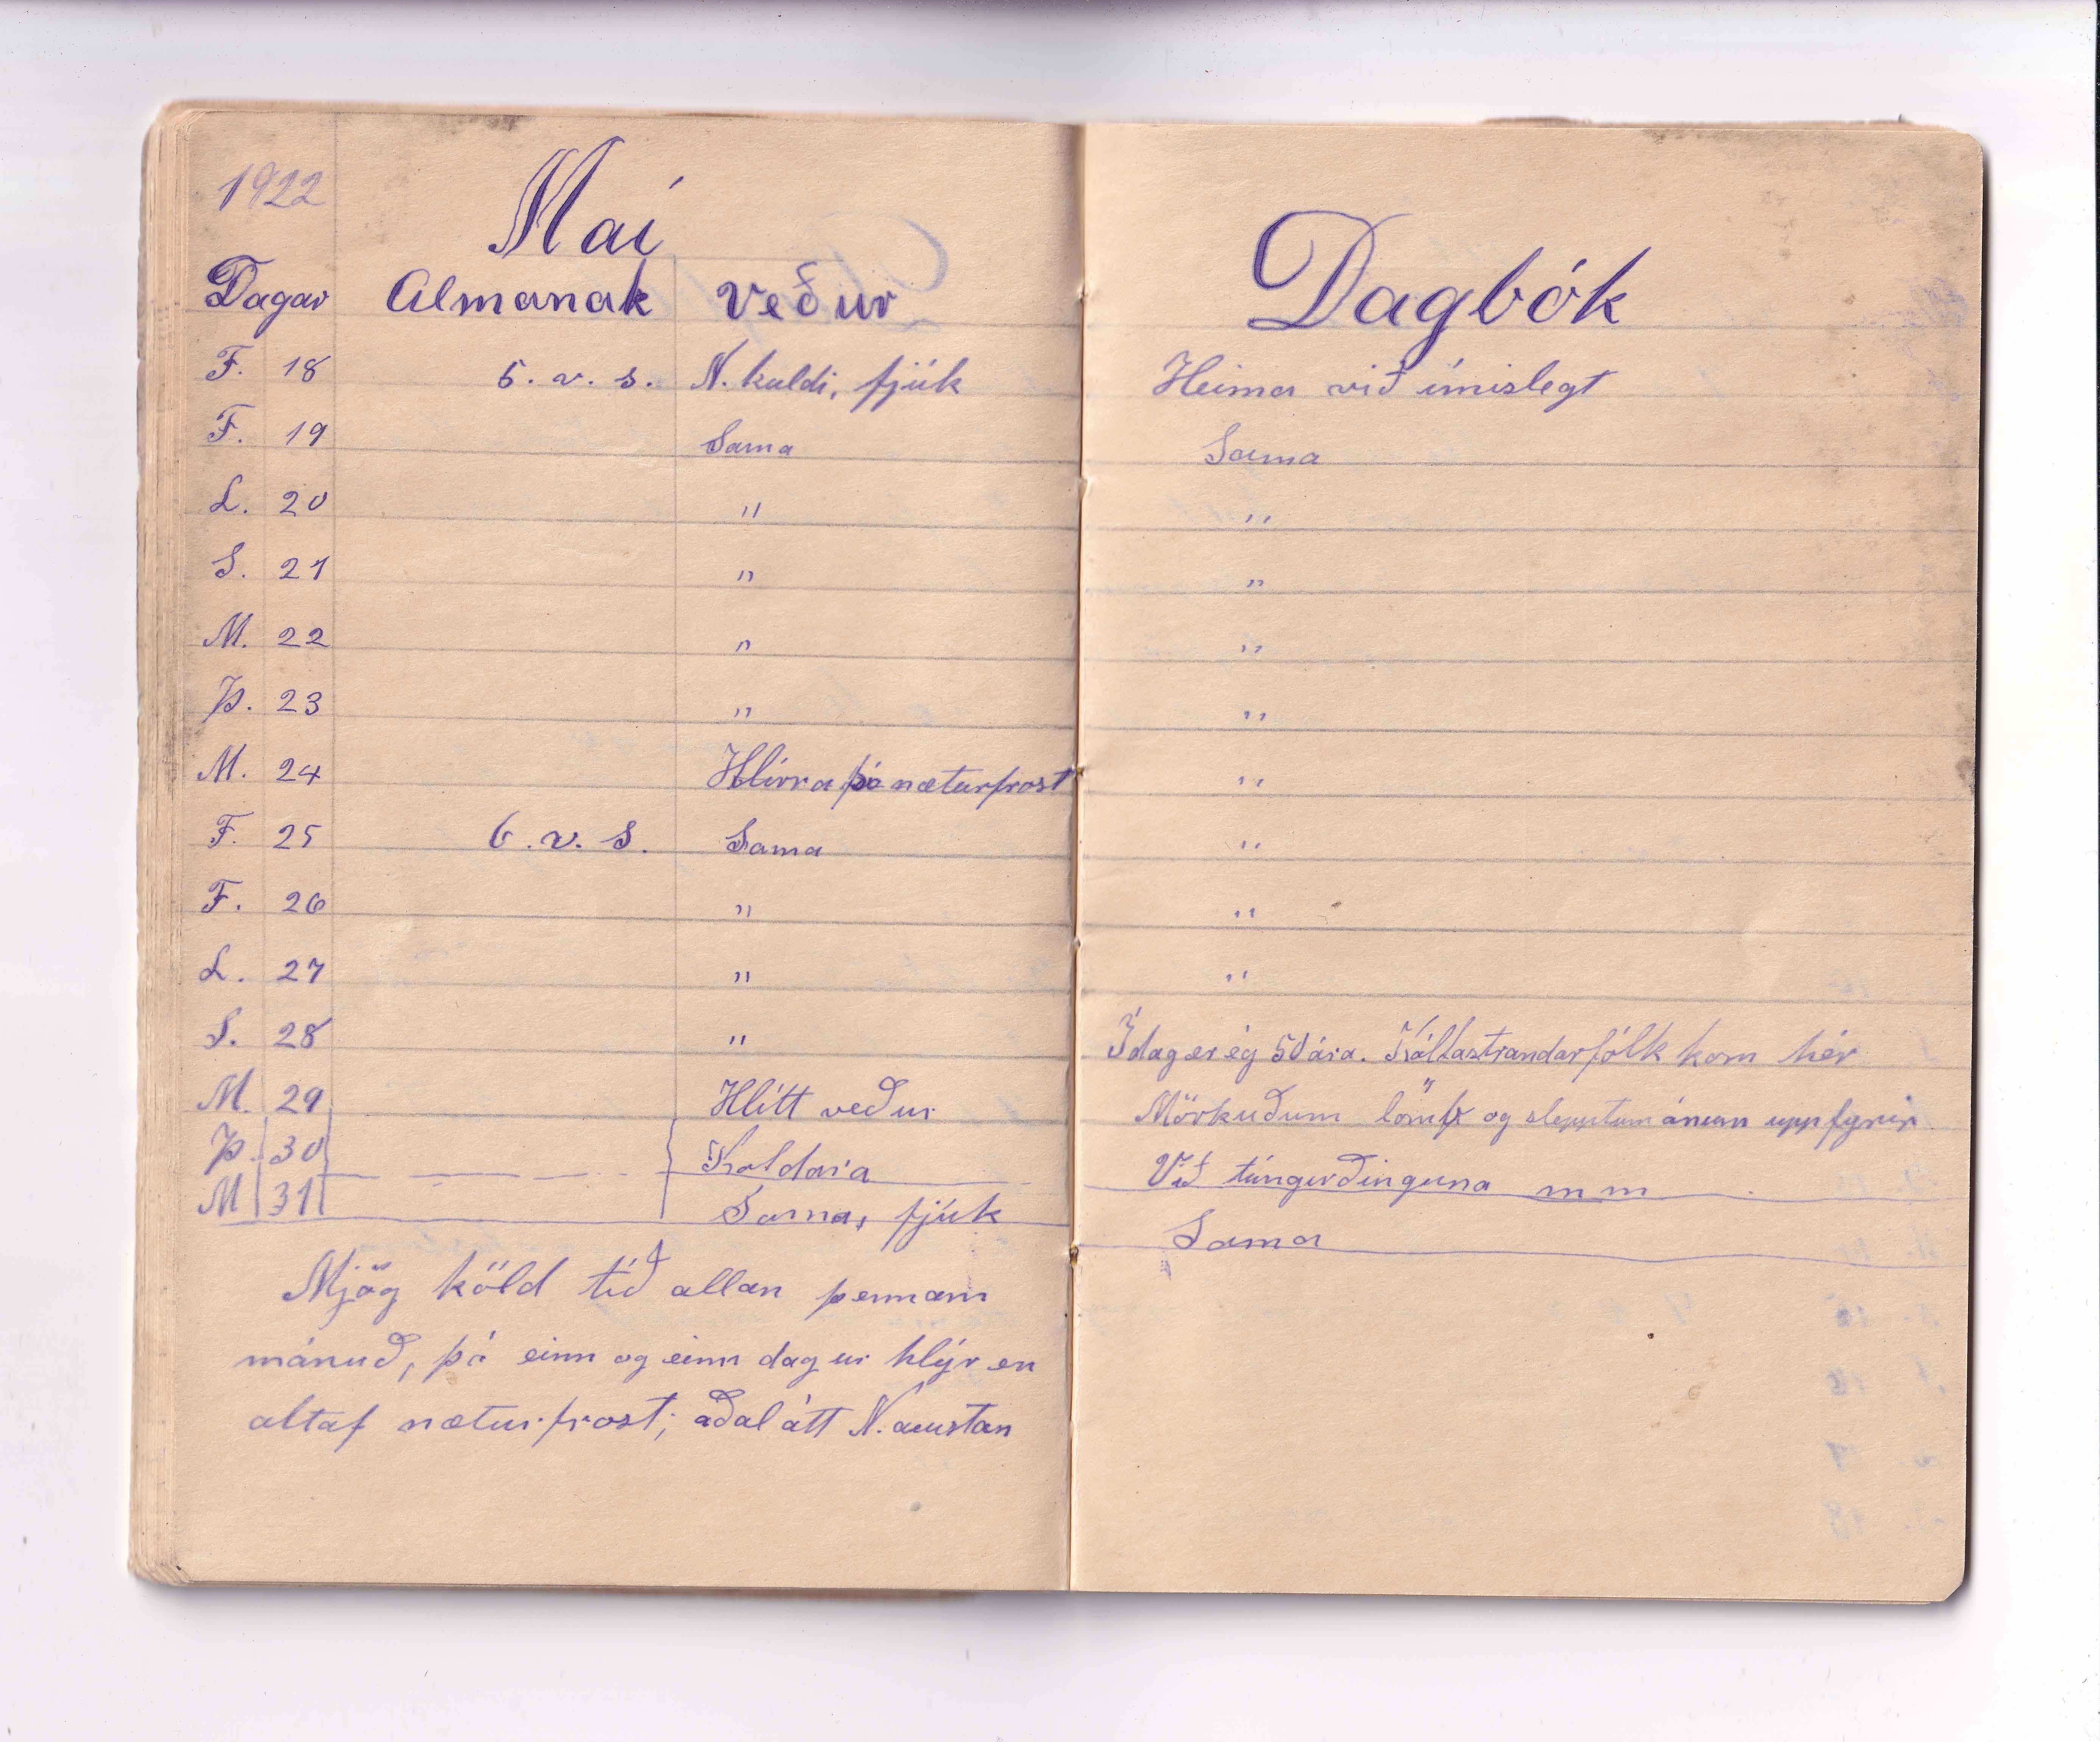 1922
Maí
Dagar Almanak Veður
F. 18 5. v. s. N. kuldi, fjúk
F. 19 Sama
L. 20 "
S. 21 "
M. 22 "
Þ. 23 "
M. 24 Hlírra þó næturfrost
F. 25 6. v. s. Sama
F. 26 "
L. 27 "
S. 28 "
M. 29 Hlítt veður
Þ. 30 Kaldara
M 31 Sama, fjúk
Mjög köld tíð allan þennann
mánuð, þó einn og einn dagur hlýr en
altaf næturfrost; aðal átt N. austan
Dagbók
Heima við ímislegt
Sama
"
"
"
"
"
"
"
"
Í dag er ég 50 ára. Kálfastrandarfólk kom hér
Mörkuðum lömb og slepptum ánum upp fyrir
Við túngirðinguna m m
Sama